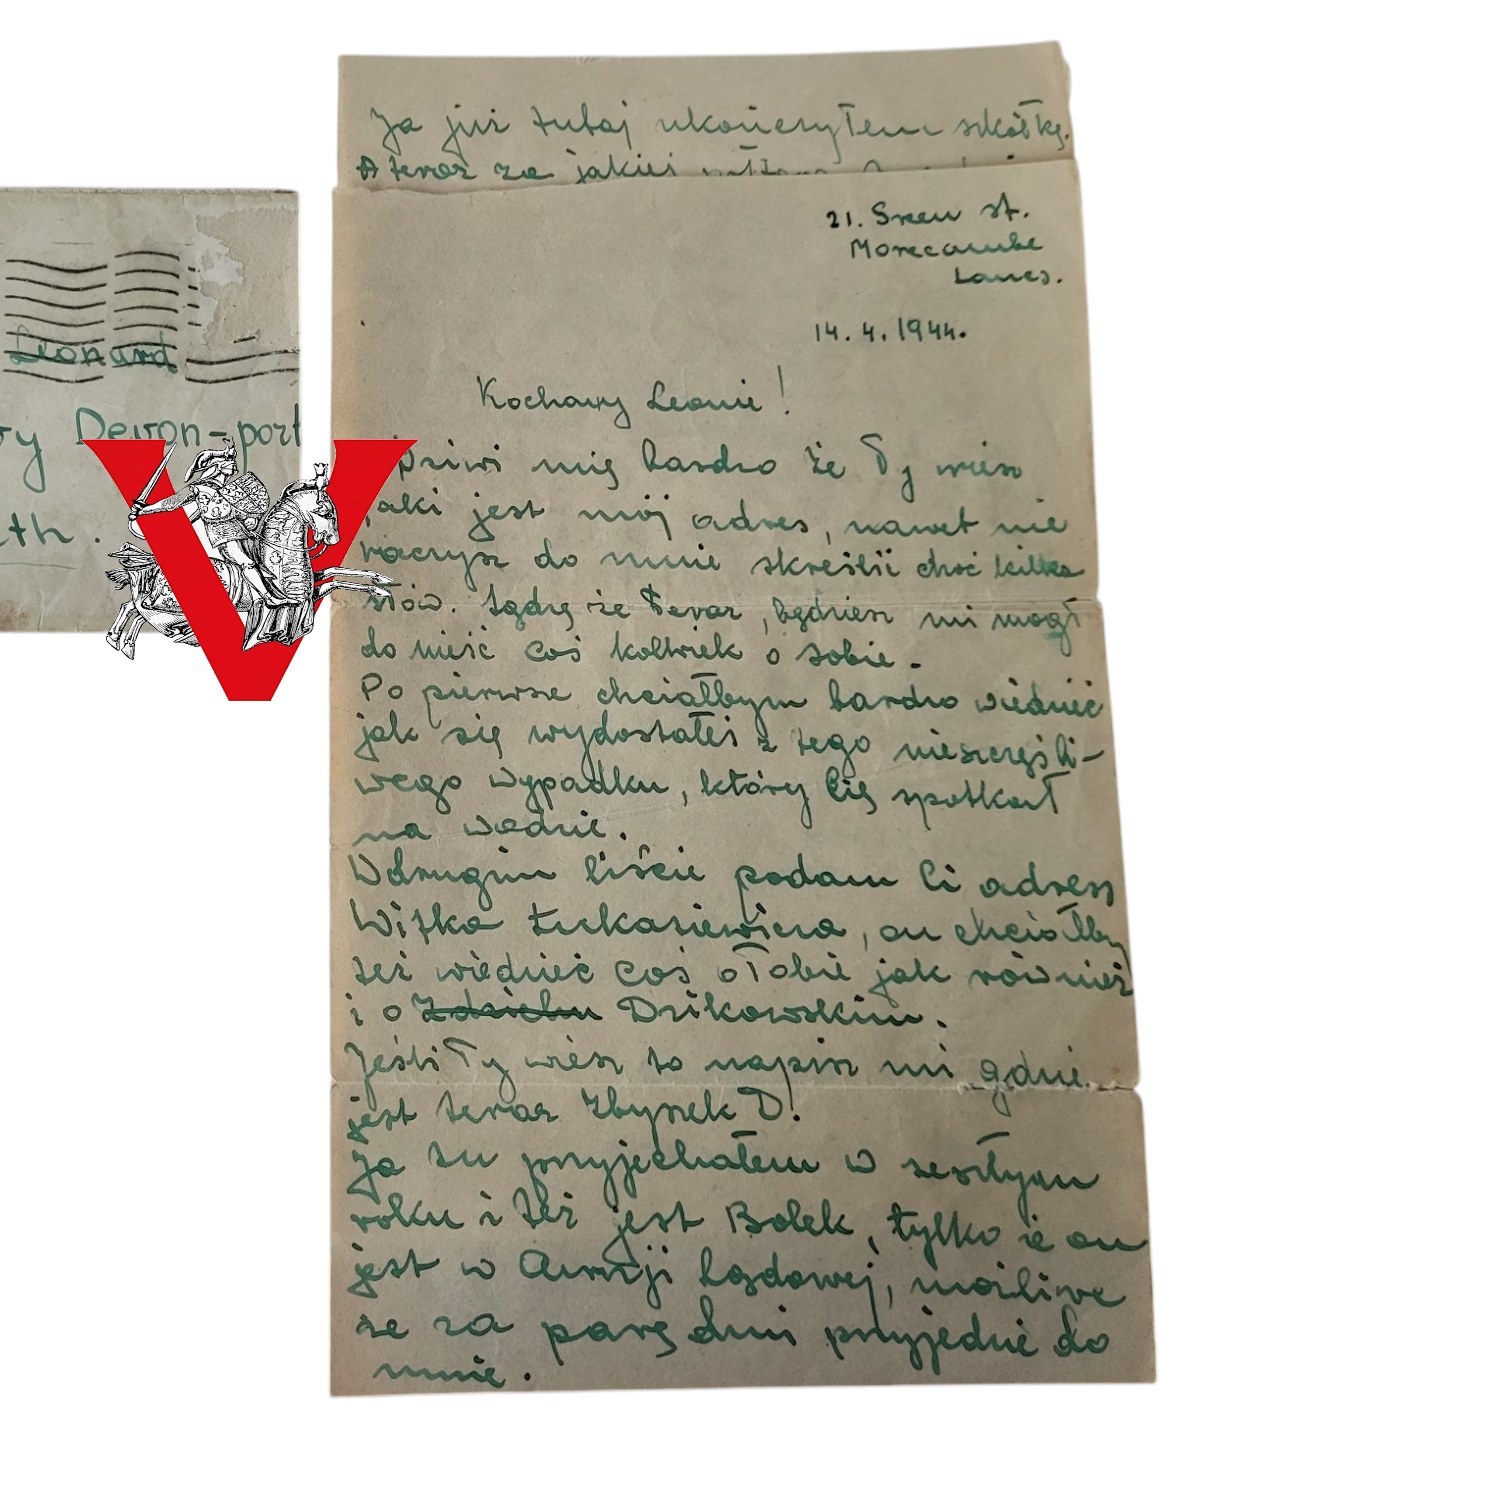 Leonard
Devon-port
Ja już tutaj ukończyłem szkółkę.
A teraz za jakieś
21. St.
Morecambe
Lancs.
14.4.1944.
Kochany Leonie!
Dziwi mię bardzo że Ty wiesz
jaki jest mój adres, nawet nie
raczysz do mnie skreślić choć kilka
słów. Sądzę że teraz, będziesz mi mógł
do nieść coś kolwiek o sobie.
Po pierwsze chciałbym bardzo wiedzieć
jak się wydostałeś z tego nieszczęśli-
wego wypadku, który Cię spotkał
na wodzie.
W drugim liście podam Ci adress
Witka Łukasiewicza, on chciałby
też wiedzieć coś o Tobie jak również
i o Zdzichu Dzikowskim.
Jeśli Ty wiesz to napisz mi gdzie
jest teraz Zbyszek D.
Ja tu przyjechałem w zeszłym
roku i też jest Bolek, tylko że on
jest w Armji Lądowej, możliwe
że za parę dni przyjedzie do
mnie.
V